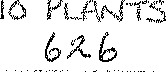 10 PLANTS
626